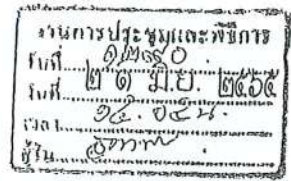 งานการประชุมและพิธีการ
รับที่ ๑๒๙๐
วันที่ ๒๑ มิ.ย. ๒๕๖๕
เวลา ๑๔.๐๔ น.
ผู้รับ